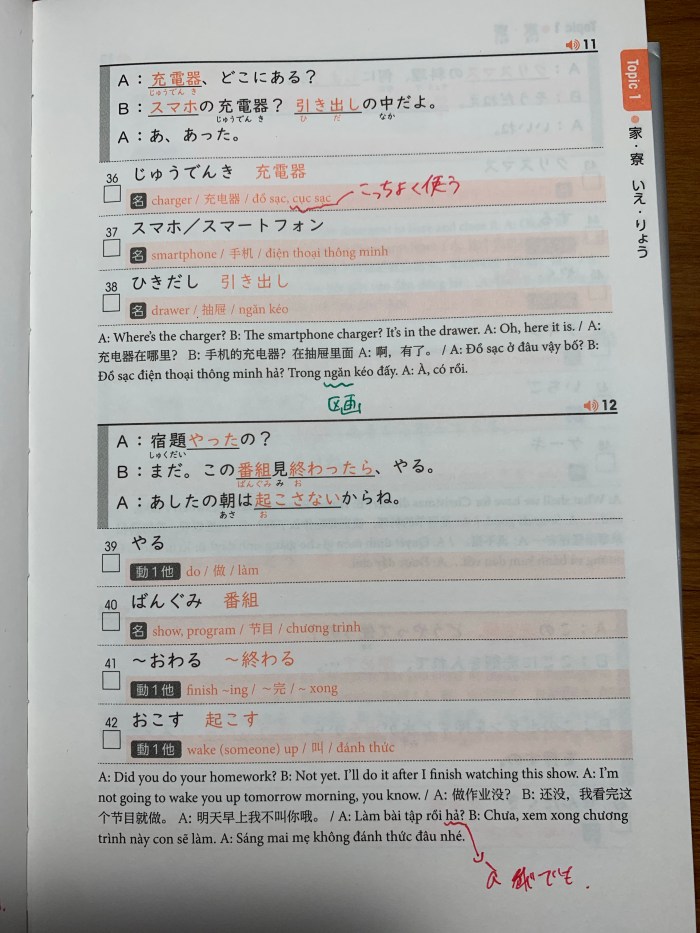 11
A：充電器、どこにある？
じゅうでん き
B：スマホの充電器？ 引き出しの中だよ。
じゅうでん き ひ だ なか
A：あ、あった。
36 じゅうでんき 充電器
名 charger / 充电器 / đồ sạc, cục sạc こっちよく使う
37 スマホ／スマートフォン
名 smartphone / 手机 / điện thoại thông minh
38 ひきだし 引き出し
名 drawer / 抽屉 / ngăn kéo
A: Where's the charger? B: The smartphone charger? It's in the drawer. A: Oh, here it is. / A:
充电器在哪里？ B: 手机的充电器？在抽屉里面 A: 啊，有了。 / A: Đồ sạc ở đâu vậy bố? B:
Đồ sạc điện thoại thông minh hả? Trong ngăn kéo đấy. A: À, có rồi.
区画
12
A：宿題やったの？
しゅくだい
B：まだ。この番組見終わったら、やる。
ばんぐみ み お
A：あしたの朝は起こさないからね。
あさ お
39 やる
動1他 do / 做 / làm
40 ばんぐみ 番組
名 show, program / 节目 / chương trình
41 〜おわる 〜終わる
動1他 finish ~ing / ~完 / ~ xong
42 おこす 起こす
動1他 wake (someone) up / 叫 / đánh thức
A: Did you do your homework? B: Not yet. I'll do it after I finish watching this show. A: I'm
not going to wake you up tomorrow morning, you know. / A: 做作业没？ B: 还没，我看完这
个节目就做。 A: 明天早上我不叫你哦。 / A: Làm bài tập rồi hả? B: Chưa, xem xong chương
trình này con sẽ làm. A: Sáng mai mẹ không đánh thức đâu nhé.
でも.
Topic 1
家・寮 いえ・りょう